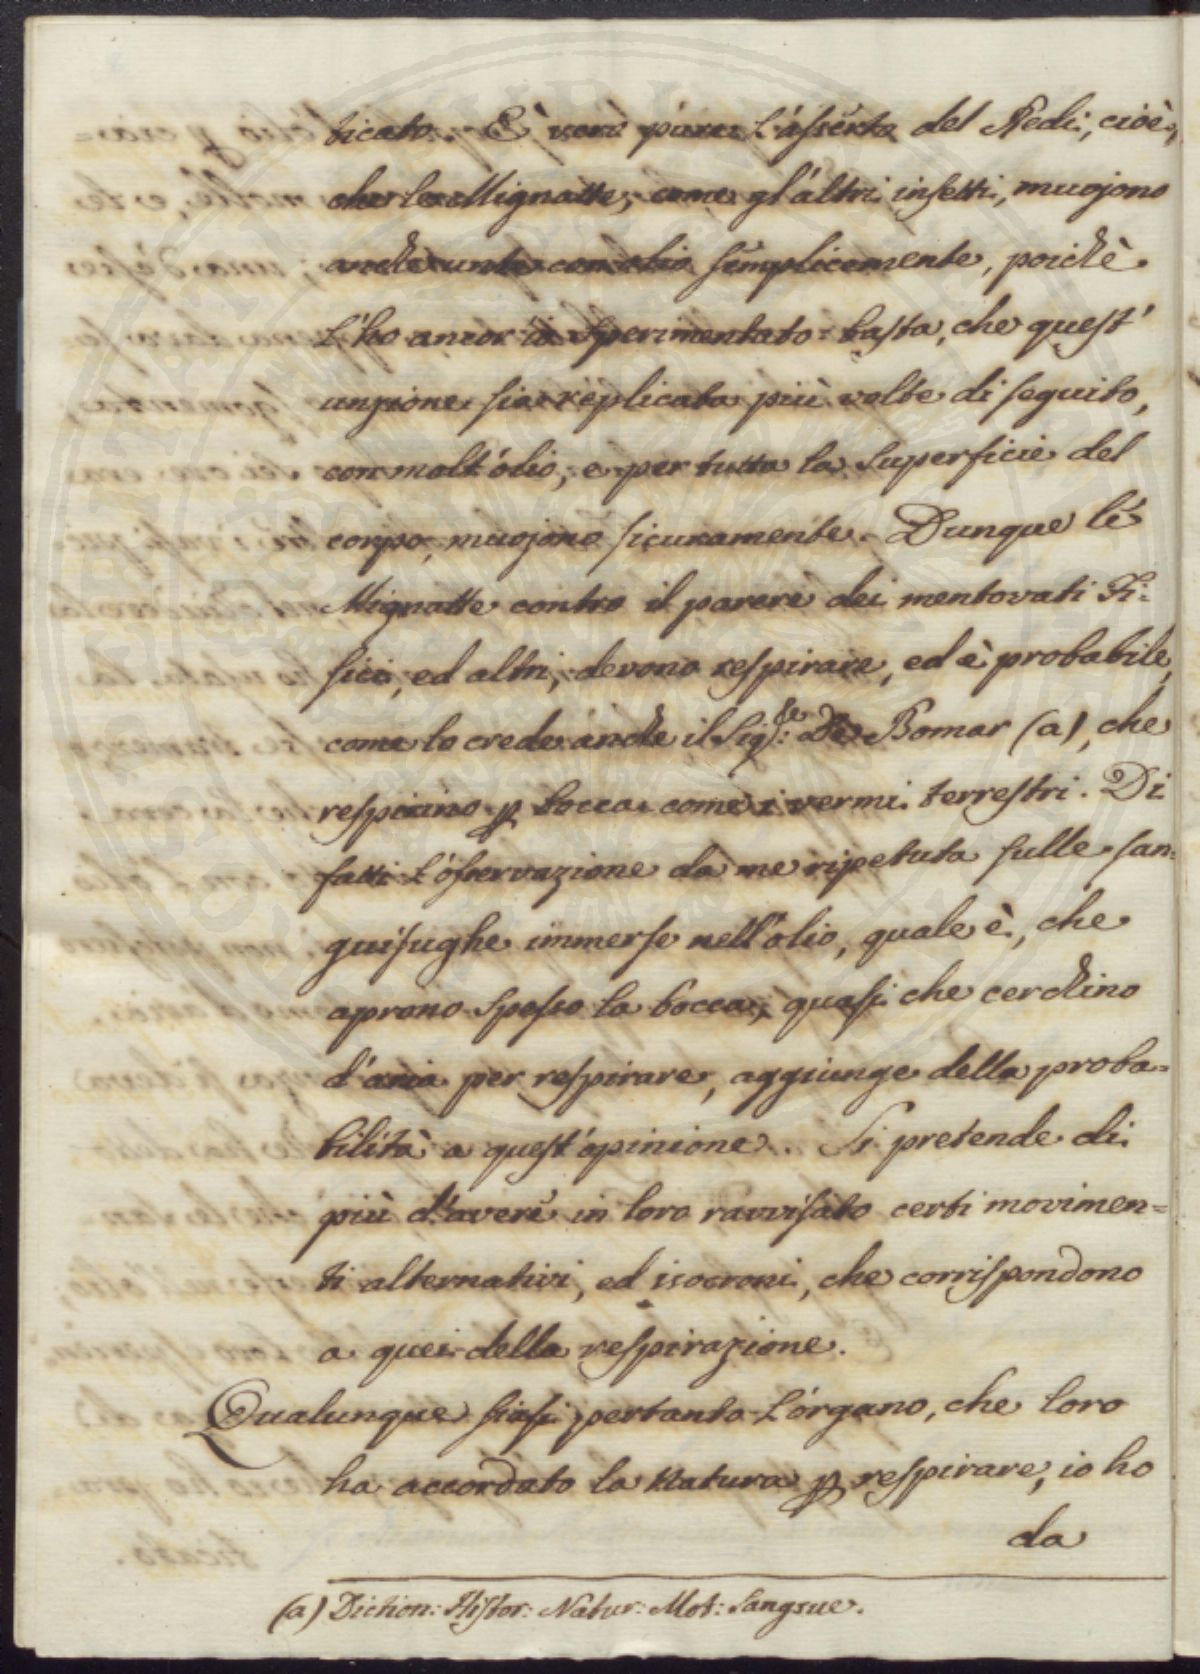 ticato. È vero pure l'asserto del Redi, cioè,
che le Mignatte, come gl'altri insetti, muojono
anche unte con olio semplicemente, poichè
l'ho ancor io sperimentato: basta, che quest'
unzione sia replicata più volte di seguito,
con molt'olio, e per tutta la superficie del
corpo, muojono sicuramente. Dunque le
Mignatte contro il parere dei mentovati Fi-
sici, ed altri, devono respirare, ed è probabile,
come lo crede anche il Sig.re De Bomar (a), che
respirino p bocca come i vermi terrestri. Di
fatti l'osservazione da me ripetuta sulle san-
guisughe immerse nell'olio, quale è, che
aprono spesso la bocca, quasi che cerchino
d'aria per respirare, aggiunge della proba-
bilità a quest'opinione. Si pretende di
più d'avere in loro ravvisato certi movimen-
ti alternativi, ed isocroni, che corrispondono
a quei della respirazione.
Qualunque siasi pertanto l'organo, che loro
ha accordato la Natura p respirare, io ho
da
(a) Diction: Histor: Natur: Mot: Sangsue.